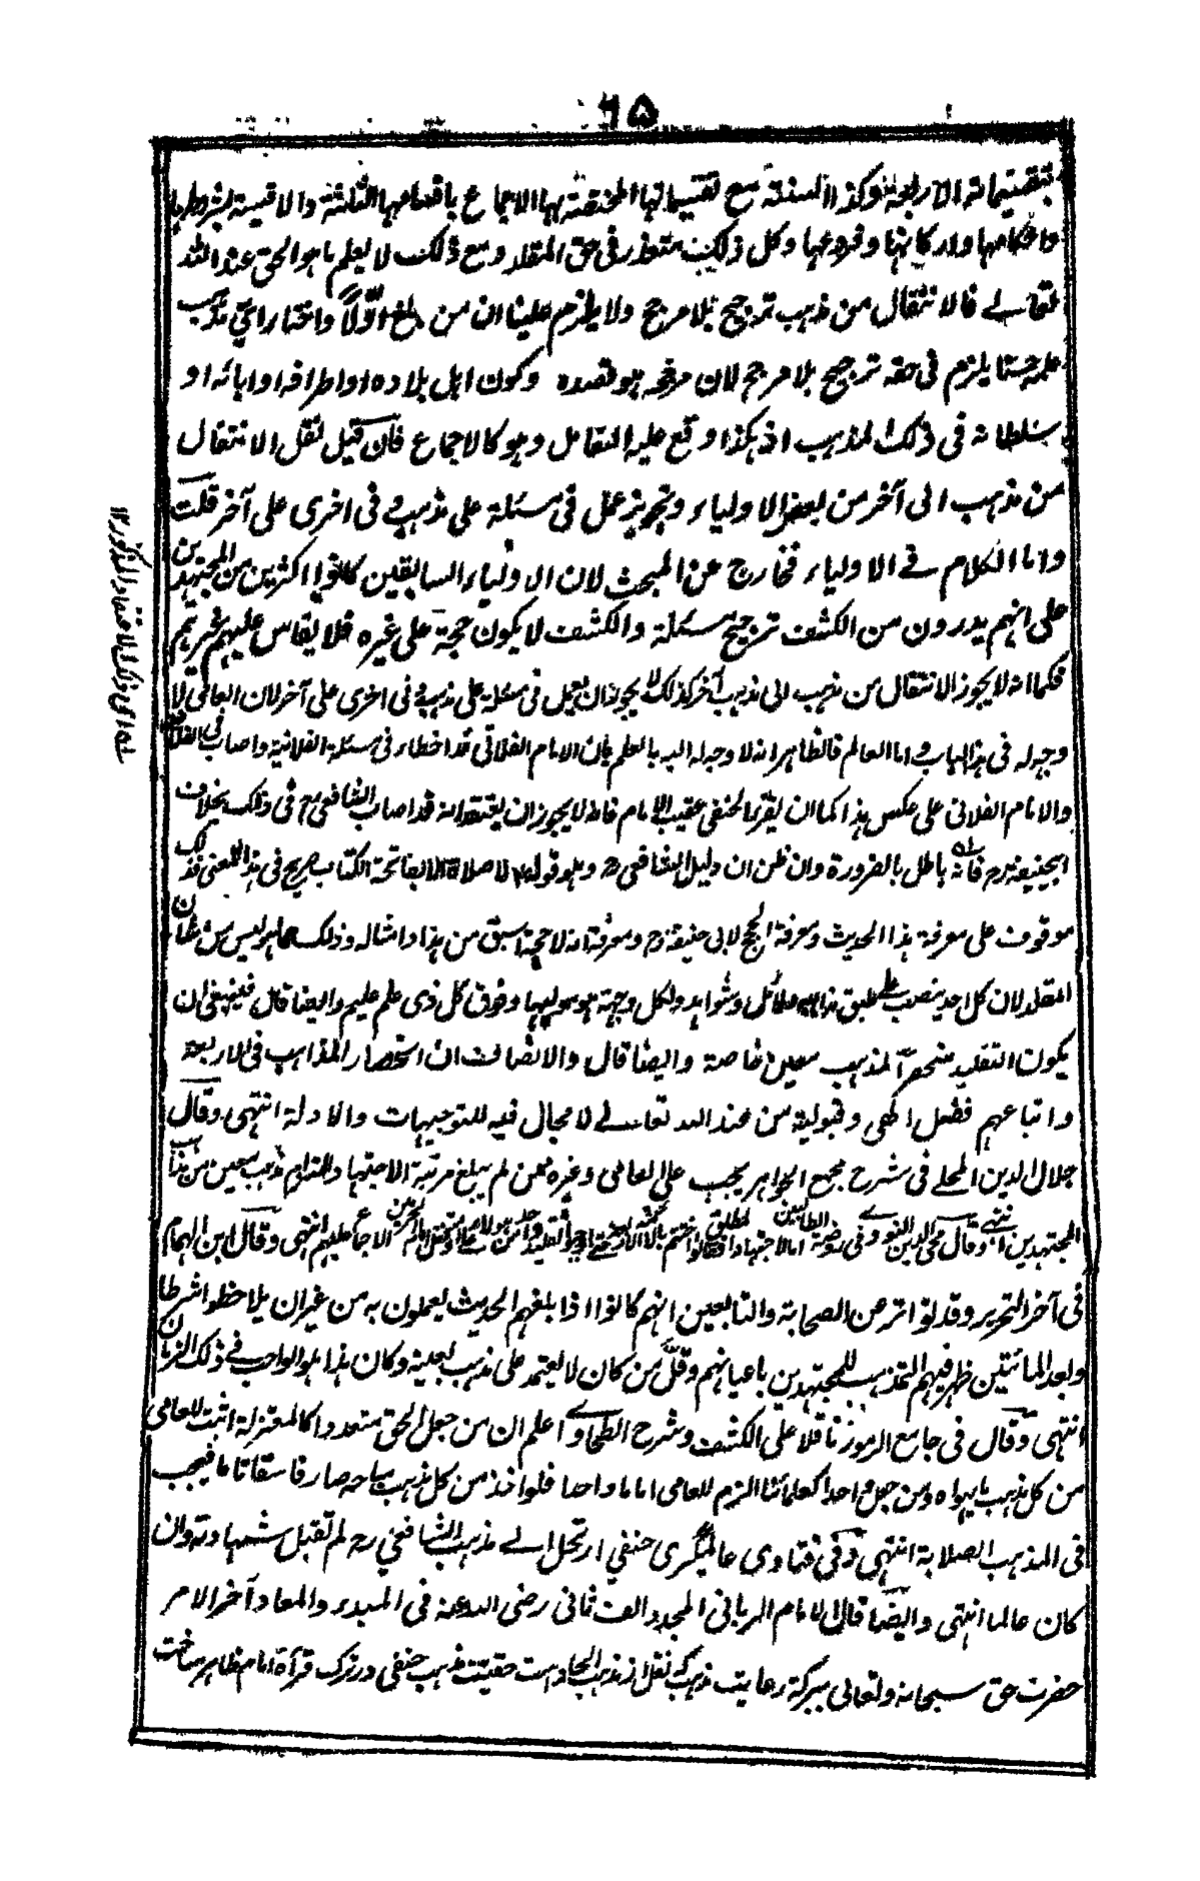 ٦٥
بتقسيماته الاربعة وكذا السنة مع تقسيماتها المختصة بها والاجماع باقسامها الثلثة والاقيسة بشروطها
واحكامها واركانها وفروعها وكل ذلك متعذر فى حق المقلد ومع ذلك لا يعلم ما هو الحق عند الله
تعالے فالانتقال من مذہب ترجيح بلا مرجح ولا يلزم علينا ان من بلغ اوّلاً واختار اىّ مذہب
يلزم فى حقه ترجيح بلا مرجح لان مرجحه ہو قصده وكون اہل بلاده او اطرافه او ابائه او
سلطانه فى ذلك المذہب اذ ہكذا وقع عليه التعامل وہو كالاجماع فان قيل نقل الانتقال
من مذہب الى آخر من بعض الاولياء وتجويز عمل فى مسئلة على مذہب وفى اخرى على آخر قلت
واما الكلام فے الاولياء فخارج عن المبحث لان الاولياء السابقين كانوا اكثرين من المجتہدين
على انهم يدرون من الكشف ترجيح مسئلة والكشف لا يكون حجة على غيره فلا يقاس عليهم غيرہم
فكما انه لا يجوز الانتقال من مذہب الى مذہب آخر كذلك لا يجوز ان يعمل فى مسئلة على مذہب وفى اخرى على آخر لان العامى لا
وجه له فى ہذا الباب واما العالم فالظاہر انه لا وجه له اليه بالعلم بان الامام الفلانى قد اخطاء فى مسئلة الفلانية واصاب فى الفلانية
والامام الفلانى على عكس ہذا كما ان يقرء الحنفى عقيب الامام فانه لا يجوز ان يعتقد انه قد اصاب الشافعى رح فى ذلك بخلاف
ابى حنيفة رح فانه باطل بالضرورة وان ظن ان دليل الشافعى رح وہو قوله لا صلاة الا بفاتحة الكتاب صريح فى ہذا المعنى فذلك
موقوف على معرفة ہذا الحديث ومعرفة الحجج لابى حنيفة رح ومعرفة انه لا حجة اسبق من ہذا وامثاله وذلك مما ہو ليس من شان
المقلد لان كل احد ينصب على طبق مذاہبه دلائل وشواہد ولكل وجهة ہو موليها وفوق كل ذى علم عليم وايضا قال فينبغى ان
يكون التقليد منحصراً لمذہب معين خاصة وايضا قال والانصاف ان انحصار المذاہب فى الاربعة
واتباعهم فضل الٰهى وقبولية من عند الله تعالے لا مجال فيه للتوجيهات والادلة انتہى وقال
جلال الدين المحلے فى شرح جمع الجوامع يجب على العامى وغيره ممن لم يبلغ مرتبة الاجتهاد التزام مذہب معين من مذاہب
المجتہدين انتہے وقال محى الدين النووے فى روضة الطالبين اما الاجتهاد المطلق فقالوا اختتم بالائمة الاربعة حتى اوجبوا تقليد واحد من ہؤلاء ونقل امام الحرمين الاجماع عليهم انتہى وقال ابن الہمام
فى آخر التحرير وقد تواتر عن الصحابة والتابعين انهم كانوا اذا بلغهم الحديث يعملون به من غير ان يلاحظوا شرطا
وبعد المائتين ظهر فيهم التمذہب للمجتہدين باعيانهم وقلّ من كان لا يعتمد على مذہب بعينه وكان ہذا ہو الواجب فے ذلك الزمان
انتہى وقال فى جامع الرموز ناقلا على الكشف وشرح الطحاوے اعلم ان من جعل الحق متعددا كالمعتزلة اثبت للعامى
من كل مذہب ما يہواه ومن جعل واحدا كعلمائنا الزم للعامى اماما واحدا فلو اخذ من كل مذہب مباحه صار فاسقا تاما فيجب
فى المذہب الصلابة انتہى وفى فتاوى عالمگيرى حنفي ارتحل الے مذہب الشافعى رح لم تقبل شهادته وان
كان عالما انتہى وايضا قال الامام الربانى المجدد الف ثانى رضى الله عنه فى المبدء والمعاد آخر الامر
حضرت حق سبحانه وتعالى ببركة رعايت مذہب كه نقل از مذہب الحاد است حقيت مذہب حنفى در ترك قرآة امام ظاہر ساخت